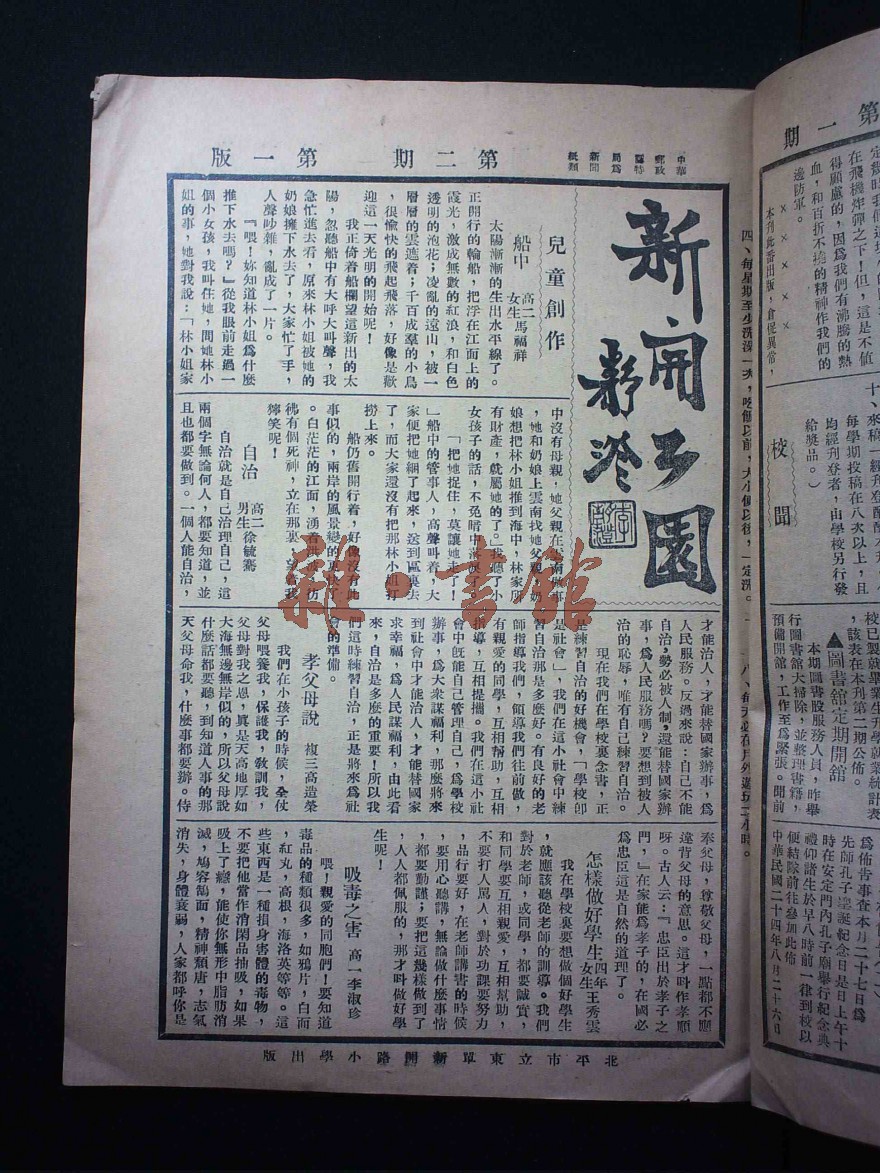 中華郵政
特為
局新聞
紙類
第二期　第一版
新開可園
兒童創作
船中　高二女生馬福祥
太陽漸漸的生出水平線了。
正開行的輪船，把浮在江面上的
霞光，激成無數的紅浪，和白色
透明的泡花；凌亂的遠山，被一
層層的雲遮着；千百成羣的小鳥
，很愉快的飛起飛落，好像是歡
迎這一天光明的開始呢！
我正倚着船欄望這新出的太
陽，忽聽船中有大呼大叫聲，我
急忙進去看，原來林小姐被她的
奶娘擁下水去了，大家忙了手，
人聲吵雜，亂成了一片。
『喂！妳知道林小姐爲什麼
推下水去嗎？』從我眼前走過一
個小女孩，我叫住她，問她林小
姐的事，她對我說：「林小姐家
中沒有母親，她父親在雲南做事
，她和奶娘上雲南找她父親，奶
娘想把林小姐推到海中，林家所
有財產，就屬她的了。」我聽了小
女孩子的話，不免暗中落淚了
「把她捉住，莫讓她走了！
」船中的管事人，高聲叫着，大
家便把她綑了起來，送到區裏去
了，而大家還沒有把那林小姐打
撈上來。
船仍舊開行着，好像沒有此
事似的，兩岸的風景變的更快
。白茫茫的江面，湧着洪波，彷
彿有個死神，立在那裏，望着我
獰笑呢！
自治　高二男生徐毓騫
自治就是自己治理自己，這
兩個字無論何人，都要知道，並
且也都要做到。一個人能自治，
才能治人，才能替國家辦事，爲
人民服務。反過來說：自己不能
自治，勢必被人制，還能替國家辦
事，爲人民服務嗎？要想到被人
治的恥辱，唯有自己練習自治。
現在我們在學校裏念書，正
是練習自治的好機會，「學校卽
是社會」，我們在這小社會中練
習自治那是多麼好。有良好的老
師指導我們，領導我們往前做，
有親愛的同學，互相幫助，互相
指導，互相提攜。我們在這小社
會中旣能自己管理自己，爲學校
辦事，爲大衆謀福利，那麼將來
到社會中才能治人，才能替國家
求幸福，爲人民謀福利，由此看
來，自治是多麼的重要！所以我
們這時練習自治，正是將來爲社
會的準備。
孝父母說　複三高造榮
我們在小孩子的時候，全仗
父母喂養我，保護我，敎訓我，
父母對我之恩，眞是天高地厚如
大海無邊無岸似的，所以父母說
什麼話都要聽，到知道人事的那
天父母命我，什麼事都要辦。侍
奉父母，尊敬父母，一點都不願
違背父母的意思。這才叫作孝順
呀。古人云：『忠臣出於孝子之
門，』在家能爲孝子的，在國必
爲忠臣這是自然的道理了。
怎樣做好學生　四年女生王秀雲
我在學校裏要想做個好學生
，就應該聽從老師的訓導。我們
對於老師，或同學，都要誠實，
和同學要互相親愛，互相幫助，
不要打人罵人，對於功課要努力
，品行要好，在老師講書的時候
，要用心聽講，無論做什麼事情
，都要勤謹；要把這幾樣做到了
，人人都佩服的，那才叫做好學
生呢！
吸毒之害　高一李淑珍
喂！親愛的同胞們！要知道
毒品的種類很多，如鴉片，白面
，紅丸，高根，海洛英等等。這
些東西是一種損身害體的毒物，
不要把他當作消閑品抽吸，如果
吸上了癮，能使你無形中脂肪消
滅，鳩容鵠面，精神頹唐，志氣
消失，身體衰弱，人家都呼你是
北平市立東單新開路小學出版
第一期
定幾時我們這塊
在飛機炸彈之下！但，這是不值
得顧慮的，因爲我們有沸騰的熱
血，和百折不撓的精神作我們的
邊防軍。
× × × × ×
本刊此番出版，倉促異常，
四、每星期至少洗澡一次，吃飯以前，大小便以後，一定洗。
八、每天必在戶外遊玩二小時。
十、來稿一經刊登酬
每學期投稿在八次以上，且
均經刊登者，由學校另行發
給獎品。）
校聞
校已製就畢業生升學就業統計表
，該表在本刊第二期公佈。
▲圖書館定期開館
本期圖書股服務人員，昨舉
行圖書館大掃除，並整理書籍，
預備開館，工作至爲緊張。聞前
爲佈告事查本月二十七日爲
先師孔子聖誕紀念日是日上午十
時在安定門內孔子廟舉行紀念典
禮仰諸生於早八時前一律到校以
便結隊前往參加此佈
中華民國二十四年八月二十六日
雜·書館